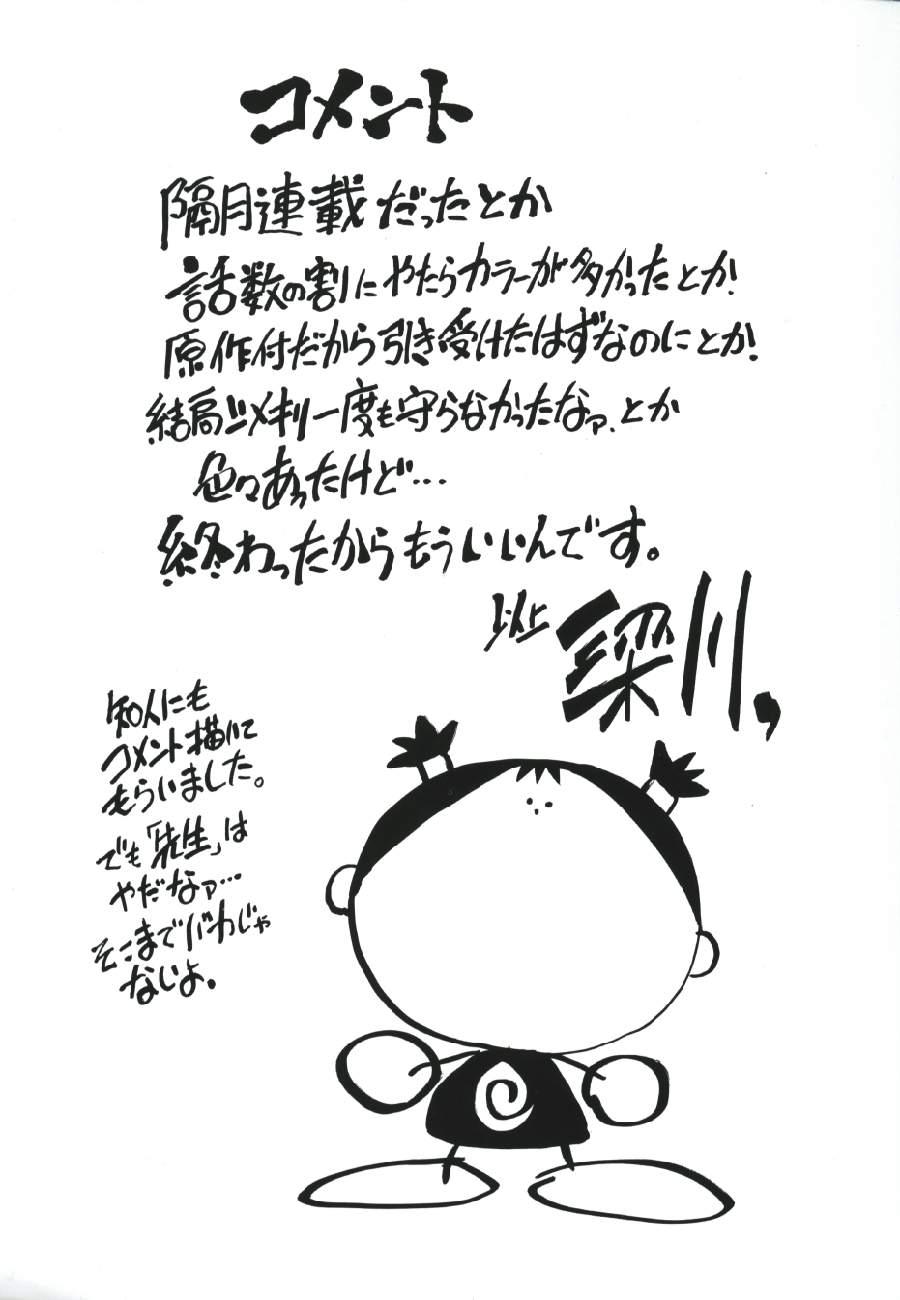 コメント
隔月連載だったとか
話数の割にやたらカラーが多かったとか.
原作付だから引き受けたはずなのにとか.
結局〆メキリ一度も守らなかったなァ.とか
色々あったけど…
終わったからもういいんです。
以上 深川,
知人にも
コメント描いて
もらいました。
でも「先生」は
やだなァ…
そこまでバカじゃ
ないよ。